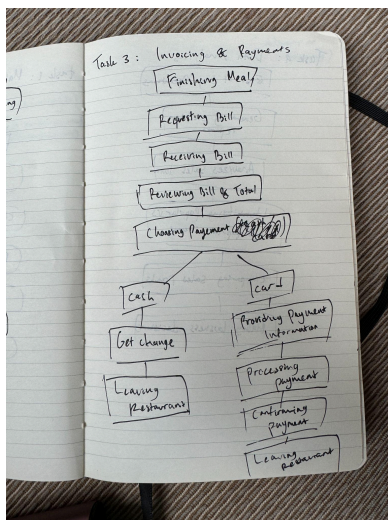 Task 3: Invoicing & Payments
Finishing Meal
Requesting Bill
Receiving Bill
Reviewing Bill & Total
Choosing Payement
cash
card
Get change
Providing Payment
Information
Leaving
Restaurant
Processing
payment
Confirming
payment
Leaving
Restaurant